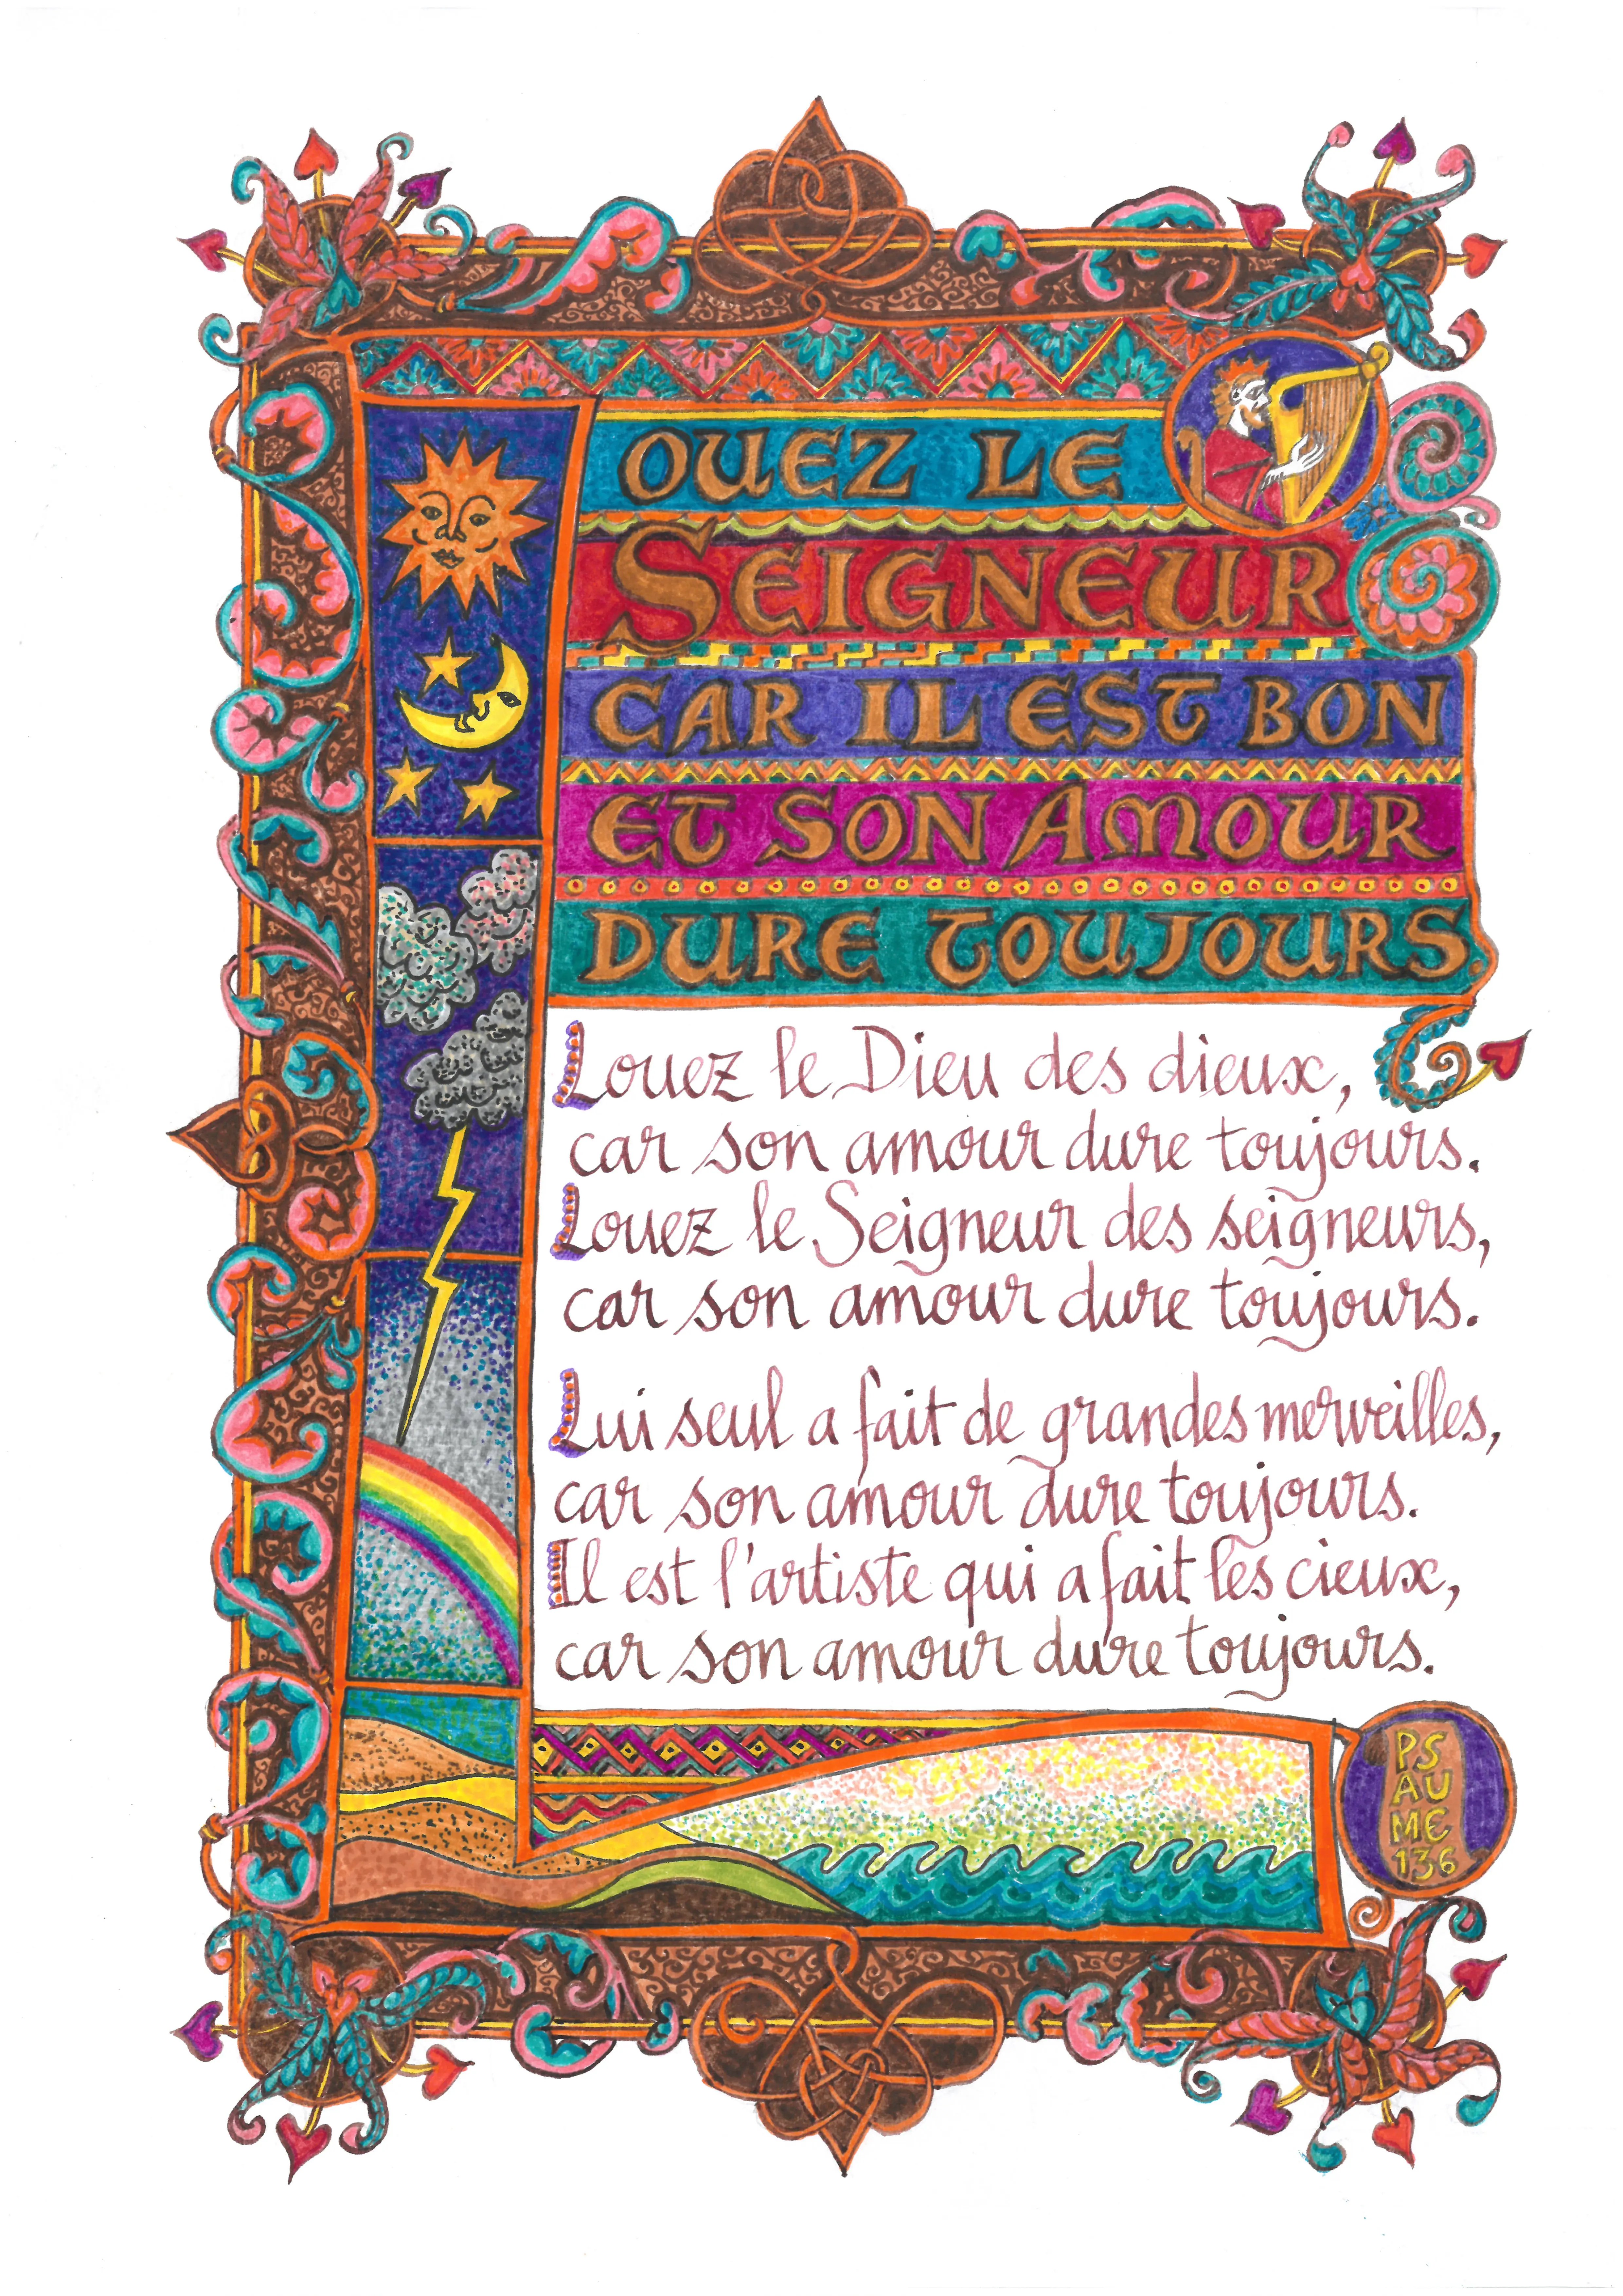 LOUEZ LE
SEIGNEUR
CAR IL EST BON
ET SON AMOUR
DURE TOUJOURS.
Louez le Dieu des dieux,
car son amour dure toujours.
Louez le Seigneur des seigneurs,
car son amour dure toujours.
Lui seul a fait de grandes merveilles,
car son amour dure toujours.
Il est l'artiste qui a fait les cieux,
car son amour dure toujours.
PS
AU
ME
136